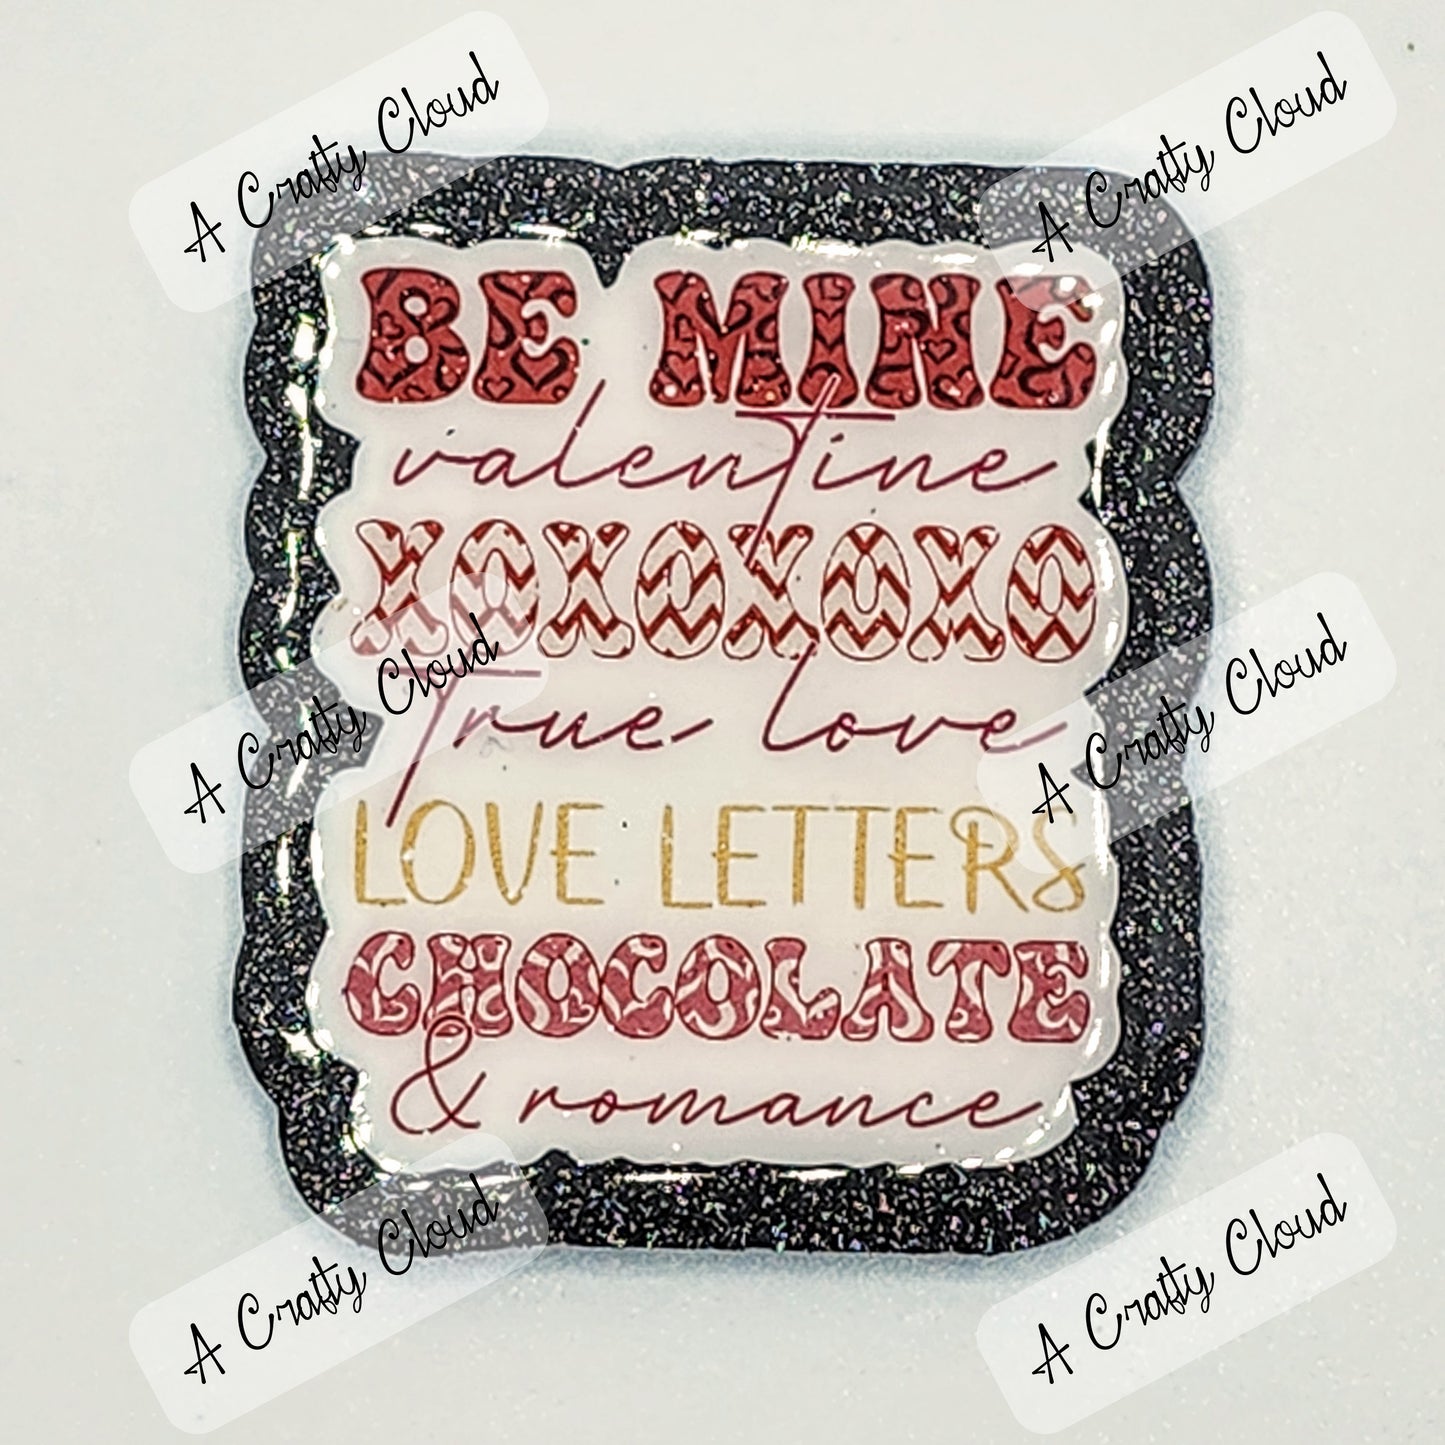 A Crafty Cloud
A Crafty Cloud
BE MINE
valenTine
XOXOXOXO
True love
A Crafty Cloud
A Crafty Cloud
LOVE LETTERS
CHOCOLATE
& romance
A Crafty Cloud
A Crafty Cloud